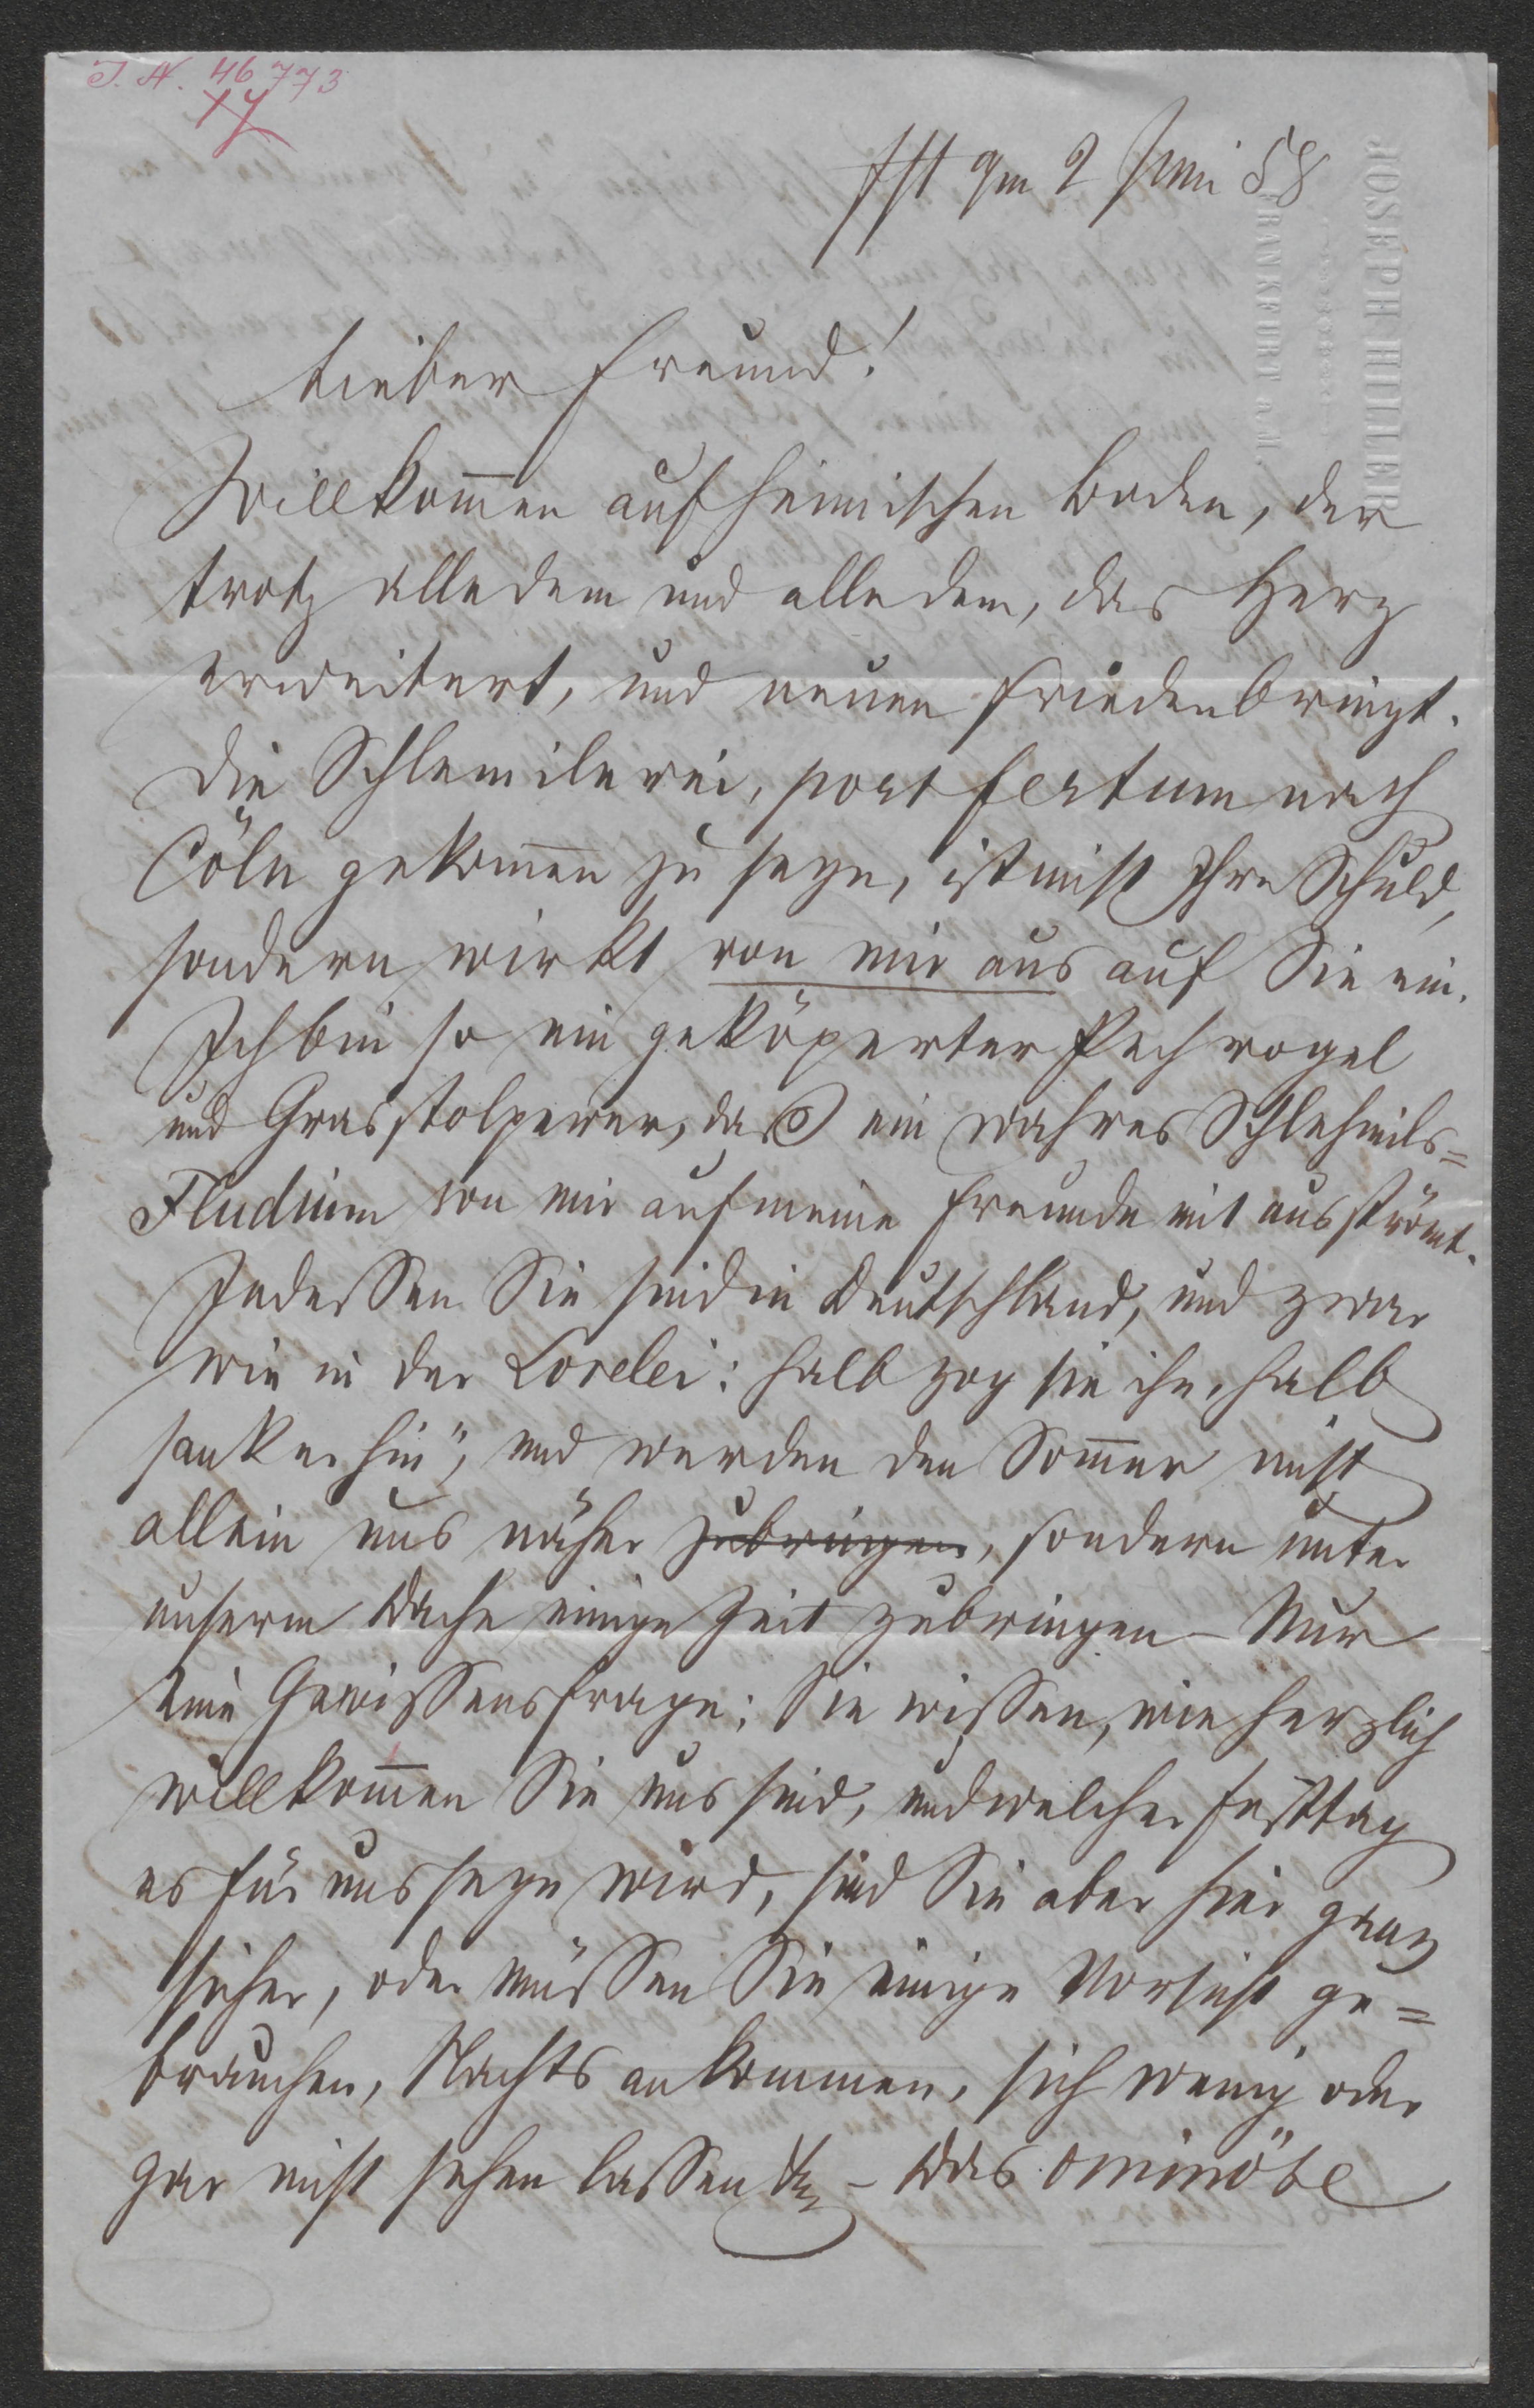 J. N. 46773
JOSEPH HILLER
FRANKFURT a.M.
Fft am 2 Juni 58
Lieber Freund!
Willkom̅en auf heimischen Boden, der
trotz alledem und alledem, das Herz
erweitert, und neuen Frieden bringt.
Die Schlemilerei, post festum nach
Cöln gekom̅en zu seyn, ist nicht Ihre Schuld,
sondern wirkt von mir aus auf Sie ein.
Ich bin so ein geköperter Pechvogel
und Grasstolperer, daß ein wahres Schlehmils=
Fludium von mir auf meine Freunde mit ausströmt.
Indessen Sie sind in Deutschland, und zwar
wie in der Lorelei: halb zog sie ihn, halb
sank er hin", und werden den Som̅er nicht
allein uns näher zubringen, sondern unter
unserm Dache einige Zeit zubringen – Nur
eine Gewissensfrage: Sie wissen, wie herzlich
willkom̅en Sie uns sind, und welcher Festtag
es für uns seyn wird, sind Sie aber hier ganz
sicher, oder müssen Sie einige Vorsicht ge=
brauchen, Nachts ankommen, sich wenig oder
gar nicht sehen lassen – Das ominöse